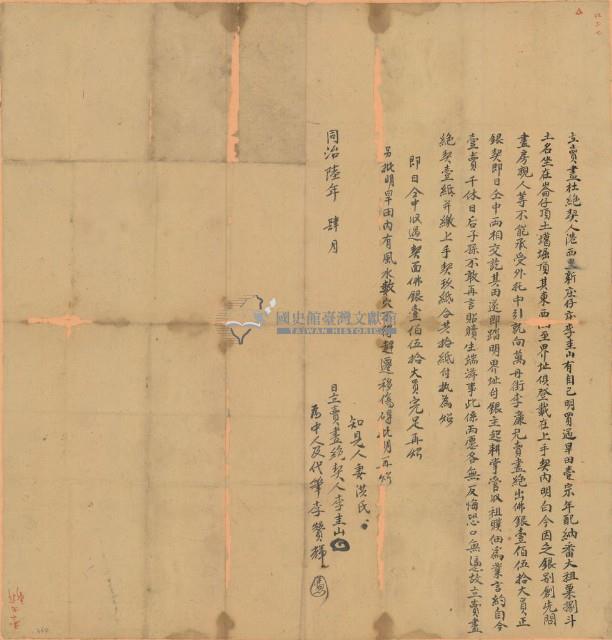 立賣盡杜絕契人港西里新庄仔庄李圭山有自己明買過旱田壹宗年配納番大租粟捌斗
土名坐在崙仔頂土墩堀頂其東西四至界址俱登載在上手契內明白今因乏銀別創先問
盡房親人等不能承受外托中引就向萬丹街李廉兄賣盡絕出佛銀壹佰伍拾大員正
銀契即日仝中兩相交訖其田遂即踏明界址付銀主起耕掌管收租贌佃為業言約自今
壹賣千休日后子孫不敢再言貼贖生端滋事此係兩愿各無反悔恐口無憑故立賣盡
絕契壹紙并繳上手契玖紙合共拾紙付執為炤
即日仝中收過契面佛銀壹佰伍拾大員完足再炤
另批明旱田內有風水數穴不得起遷移傷碍批明再炤
同治陸年 肆月
知見人妻洪氏
日立賣盡絕契人李圭山
為中人及代筆李贊輝
國史館臺灣文獻館
TAIWAN HISTORICA